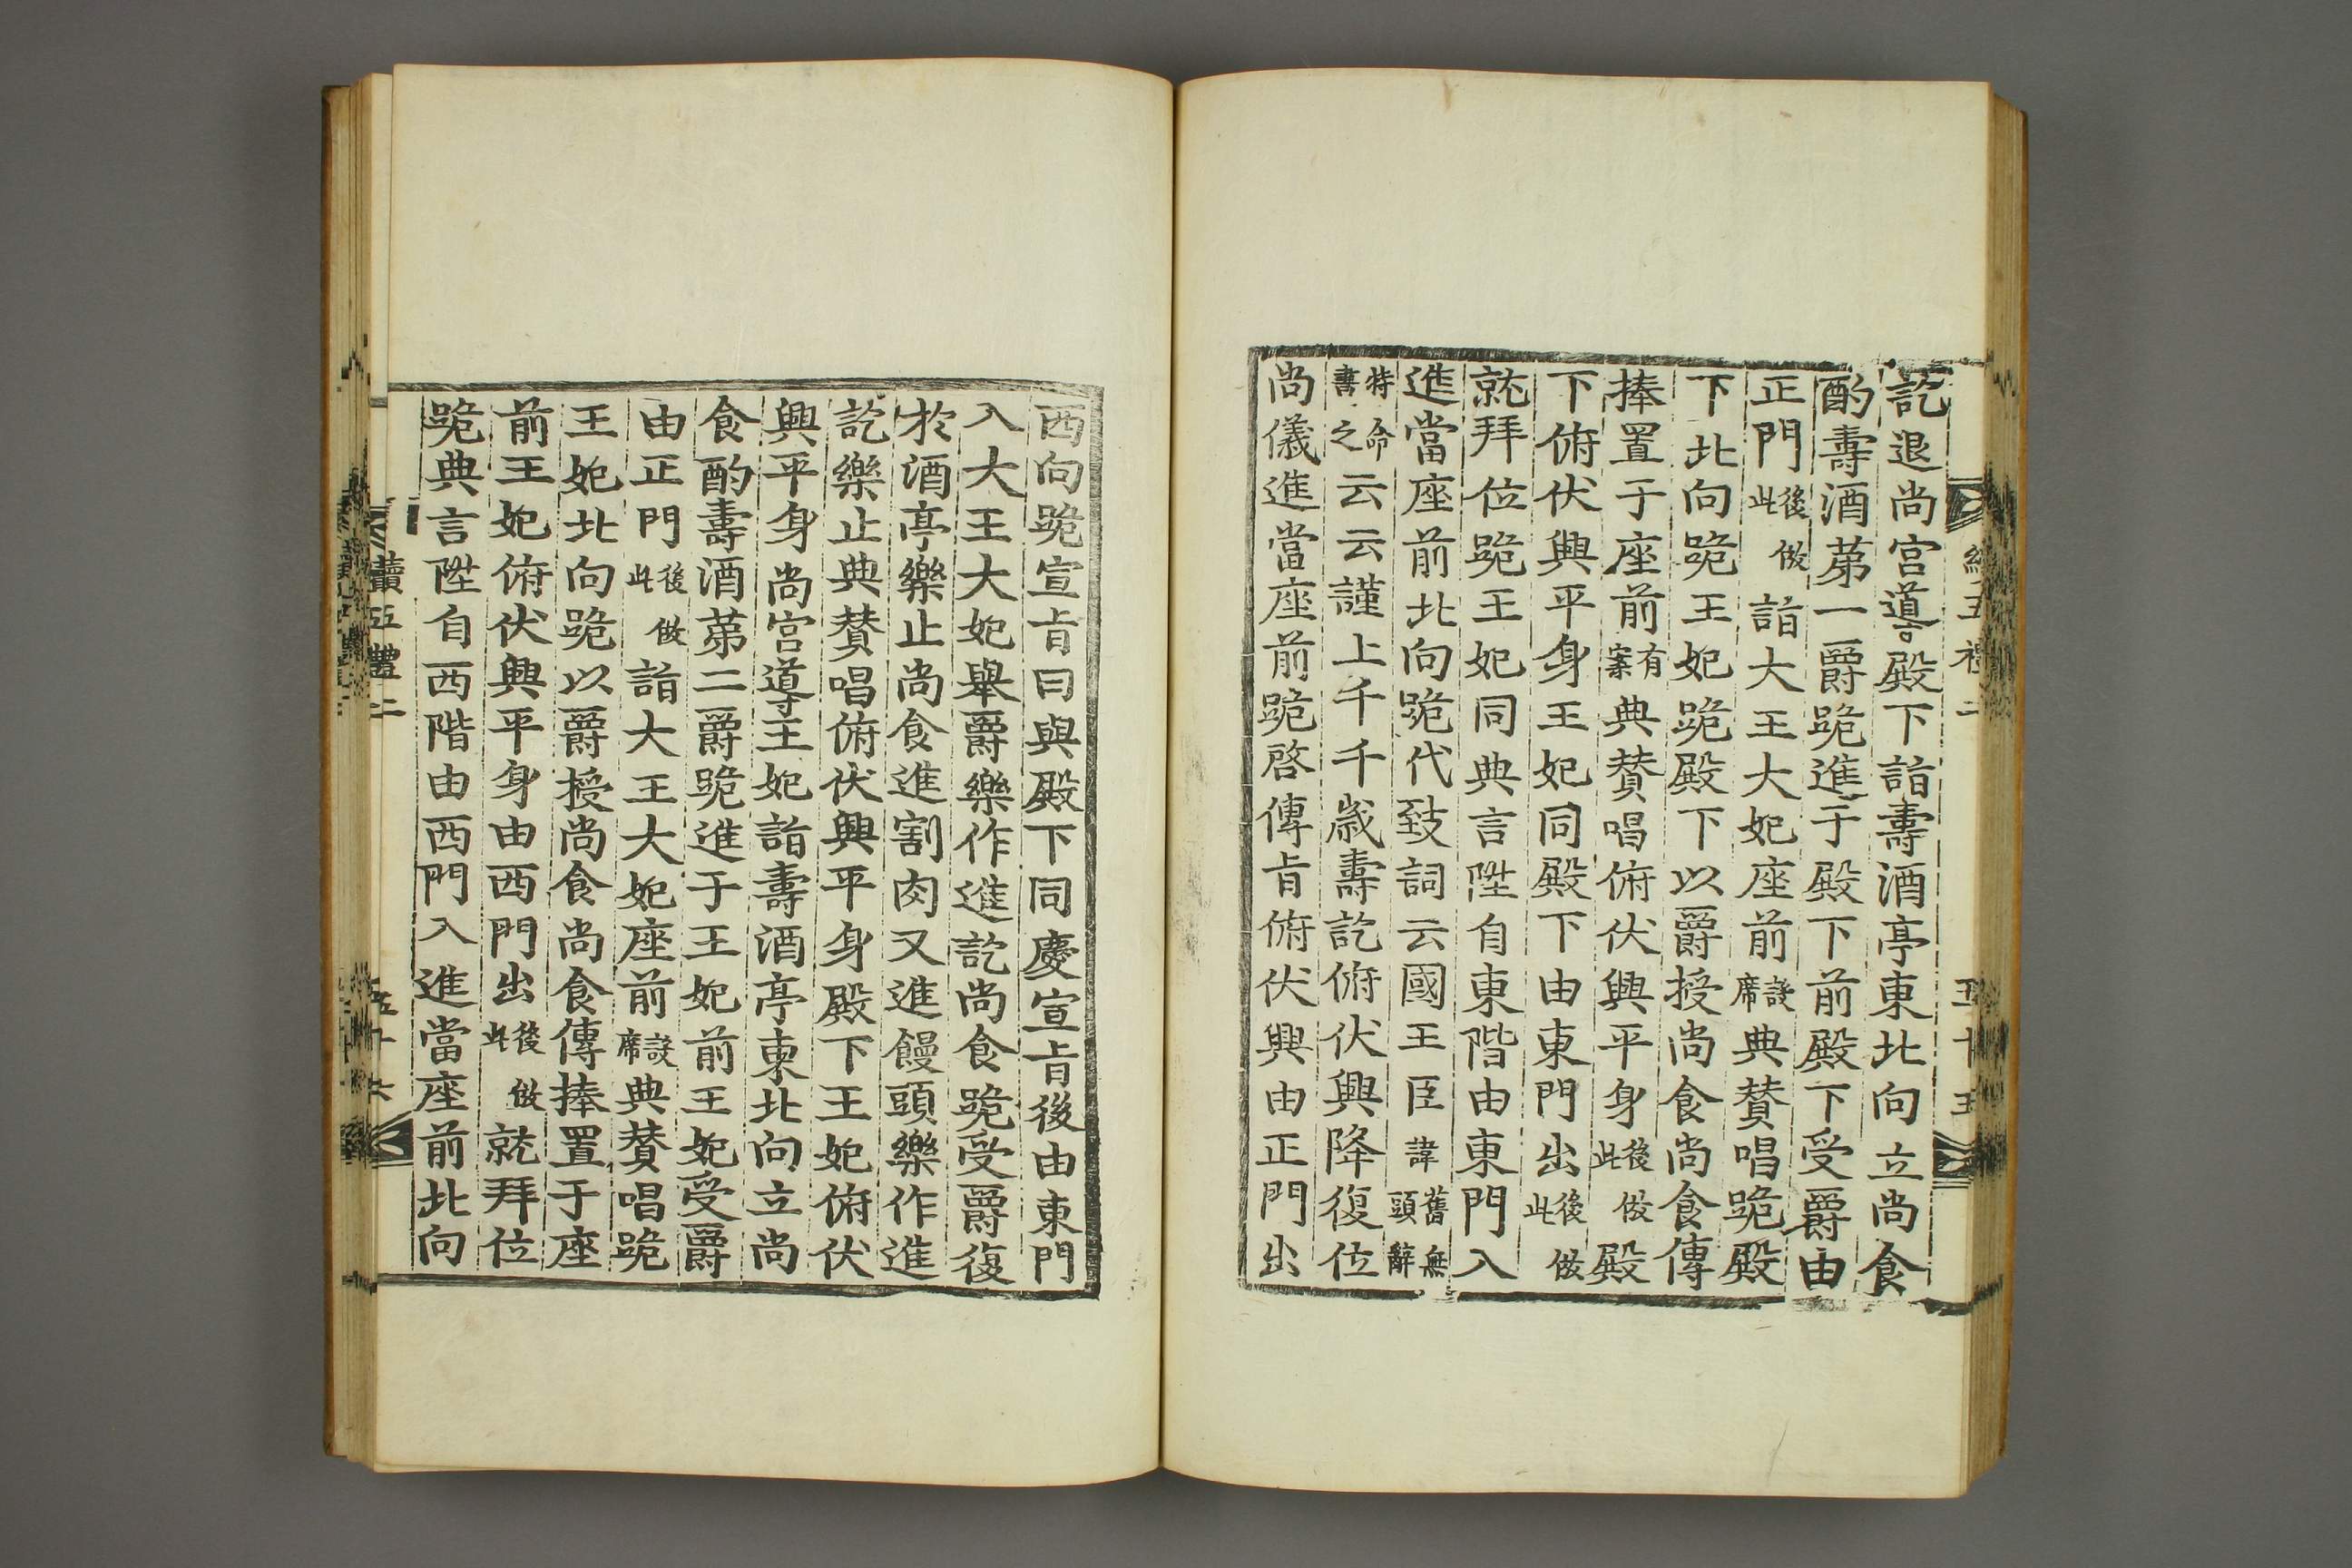 訖退尙宮導殿下詣壽酒亭東北向立尙食
酌壽酒苐一爵跪進于殿下前殿下受爵由
正門後倣此詣大王大妃座前設席典賛唱跪殿
下北向跪王妃跪殿下以爵授尙食尙食傳
捧置于座前有案典賛唱俯伏興平身後倣此殿
下俯伏興平身王妃同殿下由東門出後倣此
就拜位跪王妃同典言陞自東階由東門入
進當座前北向跪代致詞云國王臣諱舊無頭辭
特命書之云云謹上千千歲壽訖俯伏興降復位
尙儀進當座前跪啓傳旨俯伏興由正門出
西向跪宣旨曰與殿下同慶宣旨後由東門
入大王大妃擧爵樂作進訖尙食跪受爵復
於酒亭樂止尙食進割肉又進饅頭樂作進
訖樂止典賛唱俯伏興平身殿下王妃俯伏
興平身尙宮導王妃詣壽酒亭東北向立尙
食酌壽酒苐二爵跪進于王妃前王妃受爵
由正門後倣此詣大王大妃座前設席典賛唱跪
王妃北向跪以爵授尙食尙食傳捧置于座
前王妃俯伏興平身由西門出後倣此就拜位
跪典言陞自西階由西門入進當座前北向
續五禮二
五十六